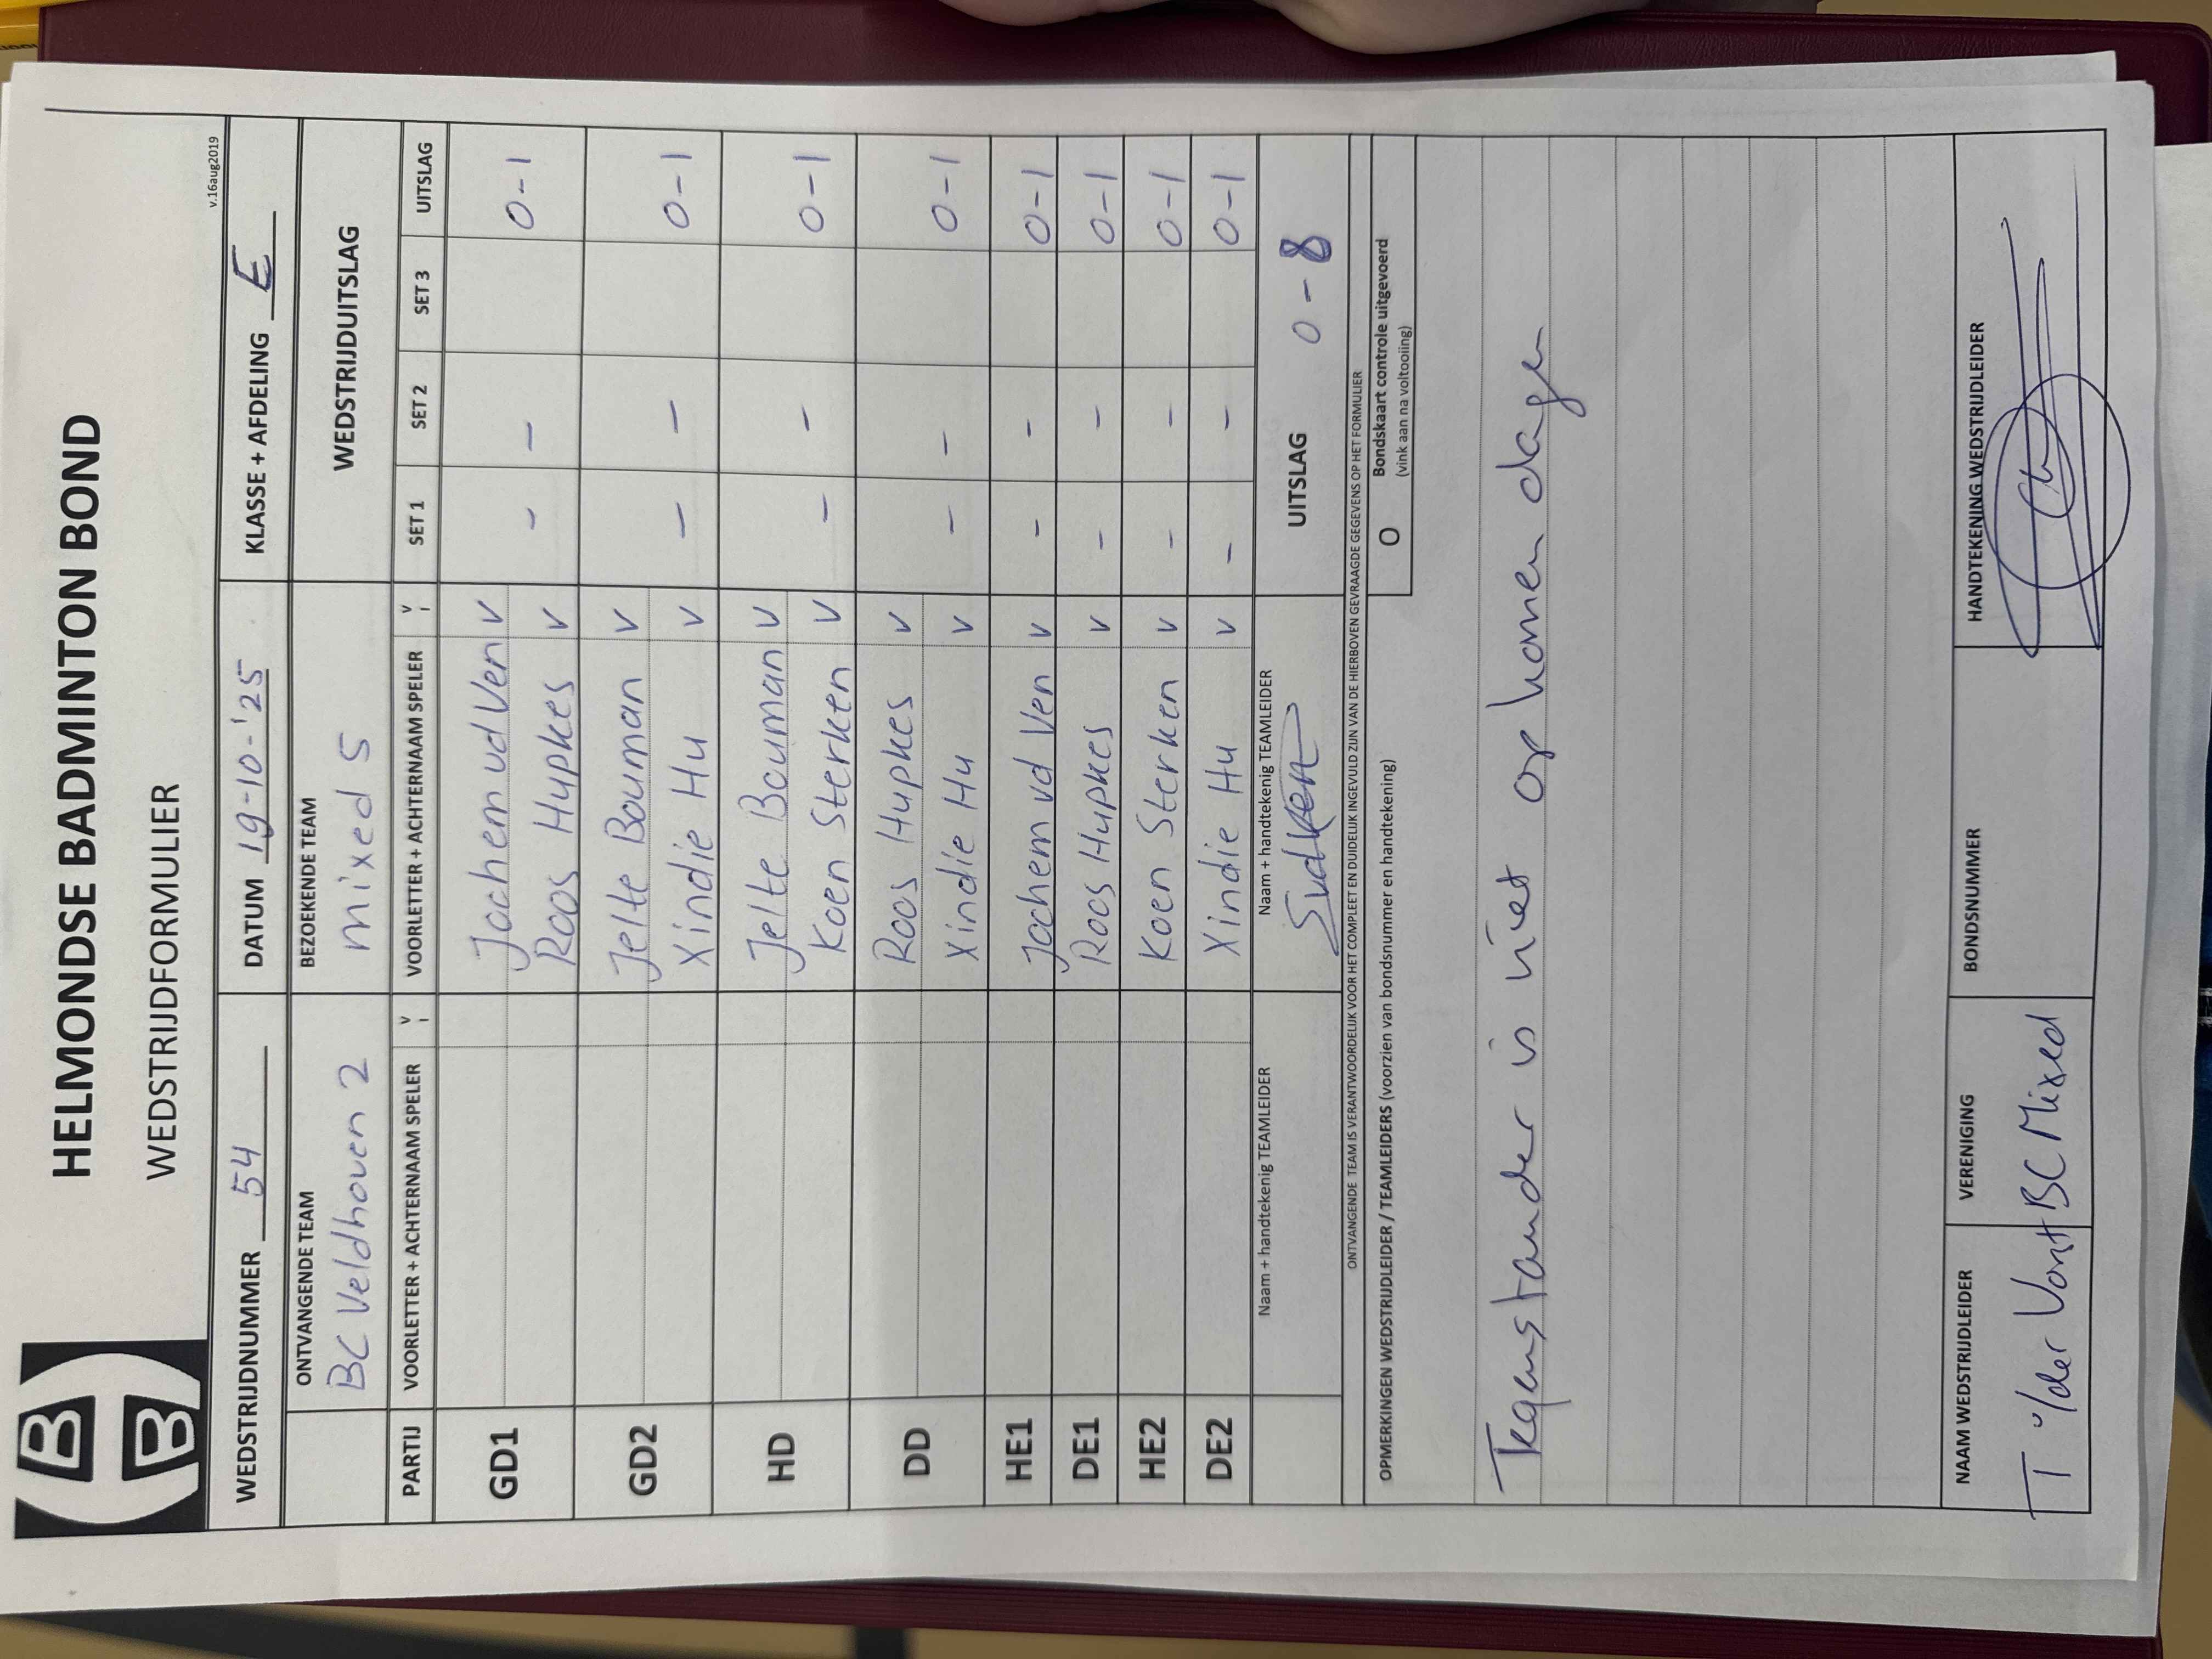 HELMONDSE BADMINTON BOND
WEDSTRIJDFORMULIER
v.16aug2019
WEDSTRIJDNUMMER 54 DATUM 19-10-'25 KLASSE + AFDELING E
ONTVANGENDE TEAM BEZOEKENDE TEAM WEDSTRIJDUITSLAG
BC Veldhoven 2 mixed 5
PARTIJ VOORLETTER + ACHTERNAAM SPELER V VOORLETTER + ACHTERNAAM SPELER V SET 1 SET 2 SET 3 UITSLAG
GD1 Jochem vd Ven v - - 0-1
Roos Hupkes v
GD2 Jelte Bouman v - - 0-1
Xindie Hu v
HD Jelte Bouman v - - 0-1
Koen Sterken v
DD Roos Hupkes v - - 0-1
Xindie Hu v
HE1 Jochem vd Ven v - - 0-1
DE1 Roos Hupkes v - - 0-1
HE2 Koen Sterken v - - 0-1
DE2 Xindie Hu v - - 0-1
Naam + handtekenig TEAMLEIDER Naam + handtekenig TEAMLEIDER UITSLAG 0-8
ONTVANGENDE TEAM IS VERANTWOORDELIJK VOOR HET COMPLEET EN DUIDELIJK INGEVULD ZIJN VAN DE HIERBOVEN GEVRAAGDE GEGEVENS OP HET FORMULIER
OPMERKINGEN WEDSTRIJDLEIDER / TEAMLEIDERS (voorzien van bondsnummer en handtekening) O Bondskaart controle uitgevoerd
(vink aan na voltooiing)
Tegenstander is niet op komen dagen
NAAM WEDSTRIJDLEIDER VERENIGING BONDSNUMMER HANDTEKENING WEDSTRIJDLEIDER
T v/der Vorst BC Mixed